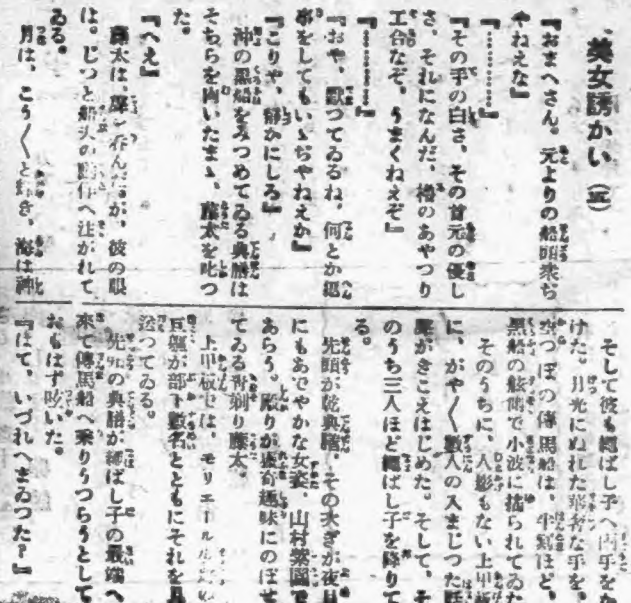 美女誘かい（五）
『おまへさん。元よりの船頭衆ぢ
やねえな』
『…………』
『その手の白さ、その首元の優し
さ、それになんだ、櫓のあやつり
工合なぞ、うまくねえぞ』
『…………』
『おや、黙つてゐるね。何とか返
事をしてもいゝぢやねえか』
『こりや、静かにしろ』
沖の黒船をみつめてゐる典膳は
そちらを向いたまゝ、藤太を叱つ
た。
『へえ』
藤太は、 呑んだ が、彼の眼
は。じつと船頭の へ注がれて
ゐる。
月は、こう〱と輝き、海は神
そして彼も縄ばし子へ両手をか
けた。月光にぬれた華奢な手を。
空つぽの傳馬船は、半 ほど、
黒船の 側で小波に揺られてゐた
そのうちに、人影もない上甲板
に、がや〱数人の入まじつた話
聲がきこえはじめた。そして、そ
のうち三人ほど縄ばし子を降りて
る。
先頭が乾典膳、その次ぎが夜目
にもあでやかな女姿、山村紫園で
あらう。殿りが猟奇趣味にのぼせ
てゐる青剃り藤太。
上甲板では、モリエール
が部下数名とともにそれを見
送つてゐる。
先頭の典膳が縄ばし子の最端へ
来て傳馬船へ乗りうつらうとして
おもはず呟いた。
『はて、いづれへまゐつた？』